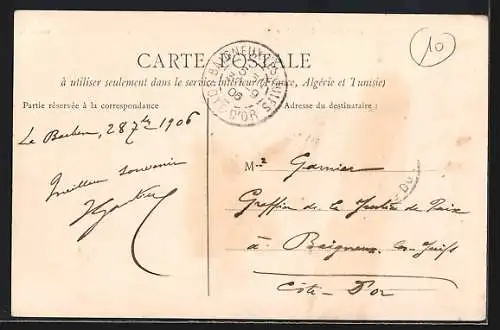 10
CARTE POSTALE
à utiliser seulement dans le service intérieur (France, Algérie et Tunisie)
BAIGNEUX-LES-JUIFS
CÔTE D'OR
Partie réservée à la correspondance
Adresse du destinataire :
Le 28 7bre 1906
Meilleur souvenir
Mr Garnier
Greffier de la Justice de Paix
à Baigneux les Juifs
Côte-D'or